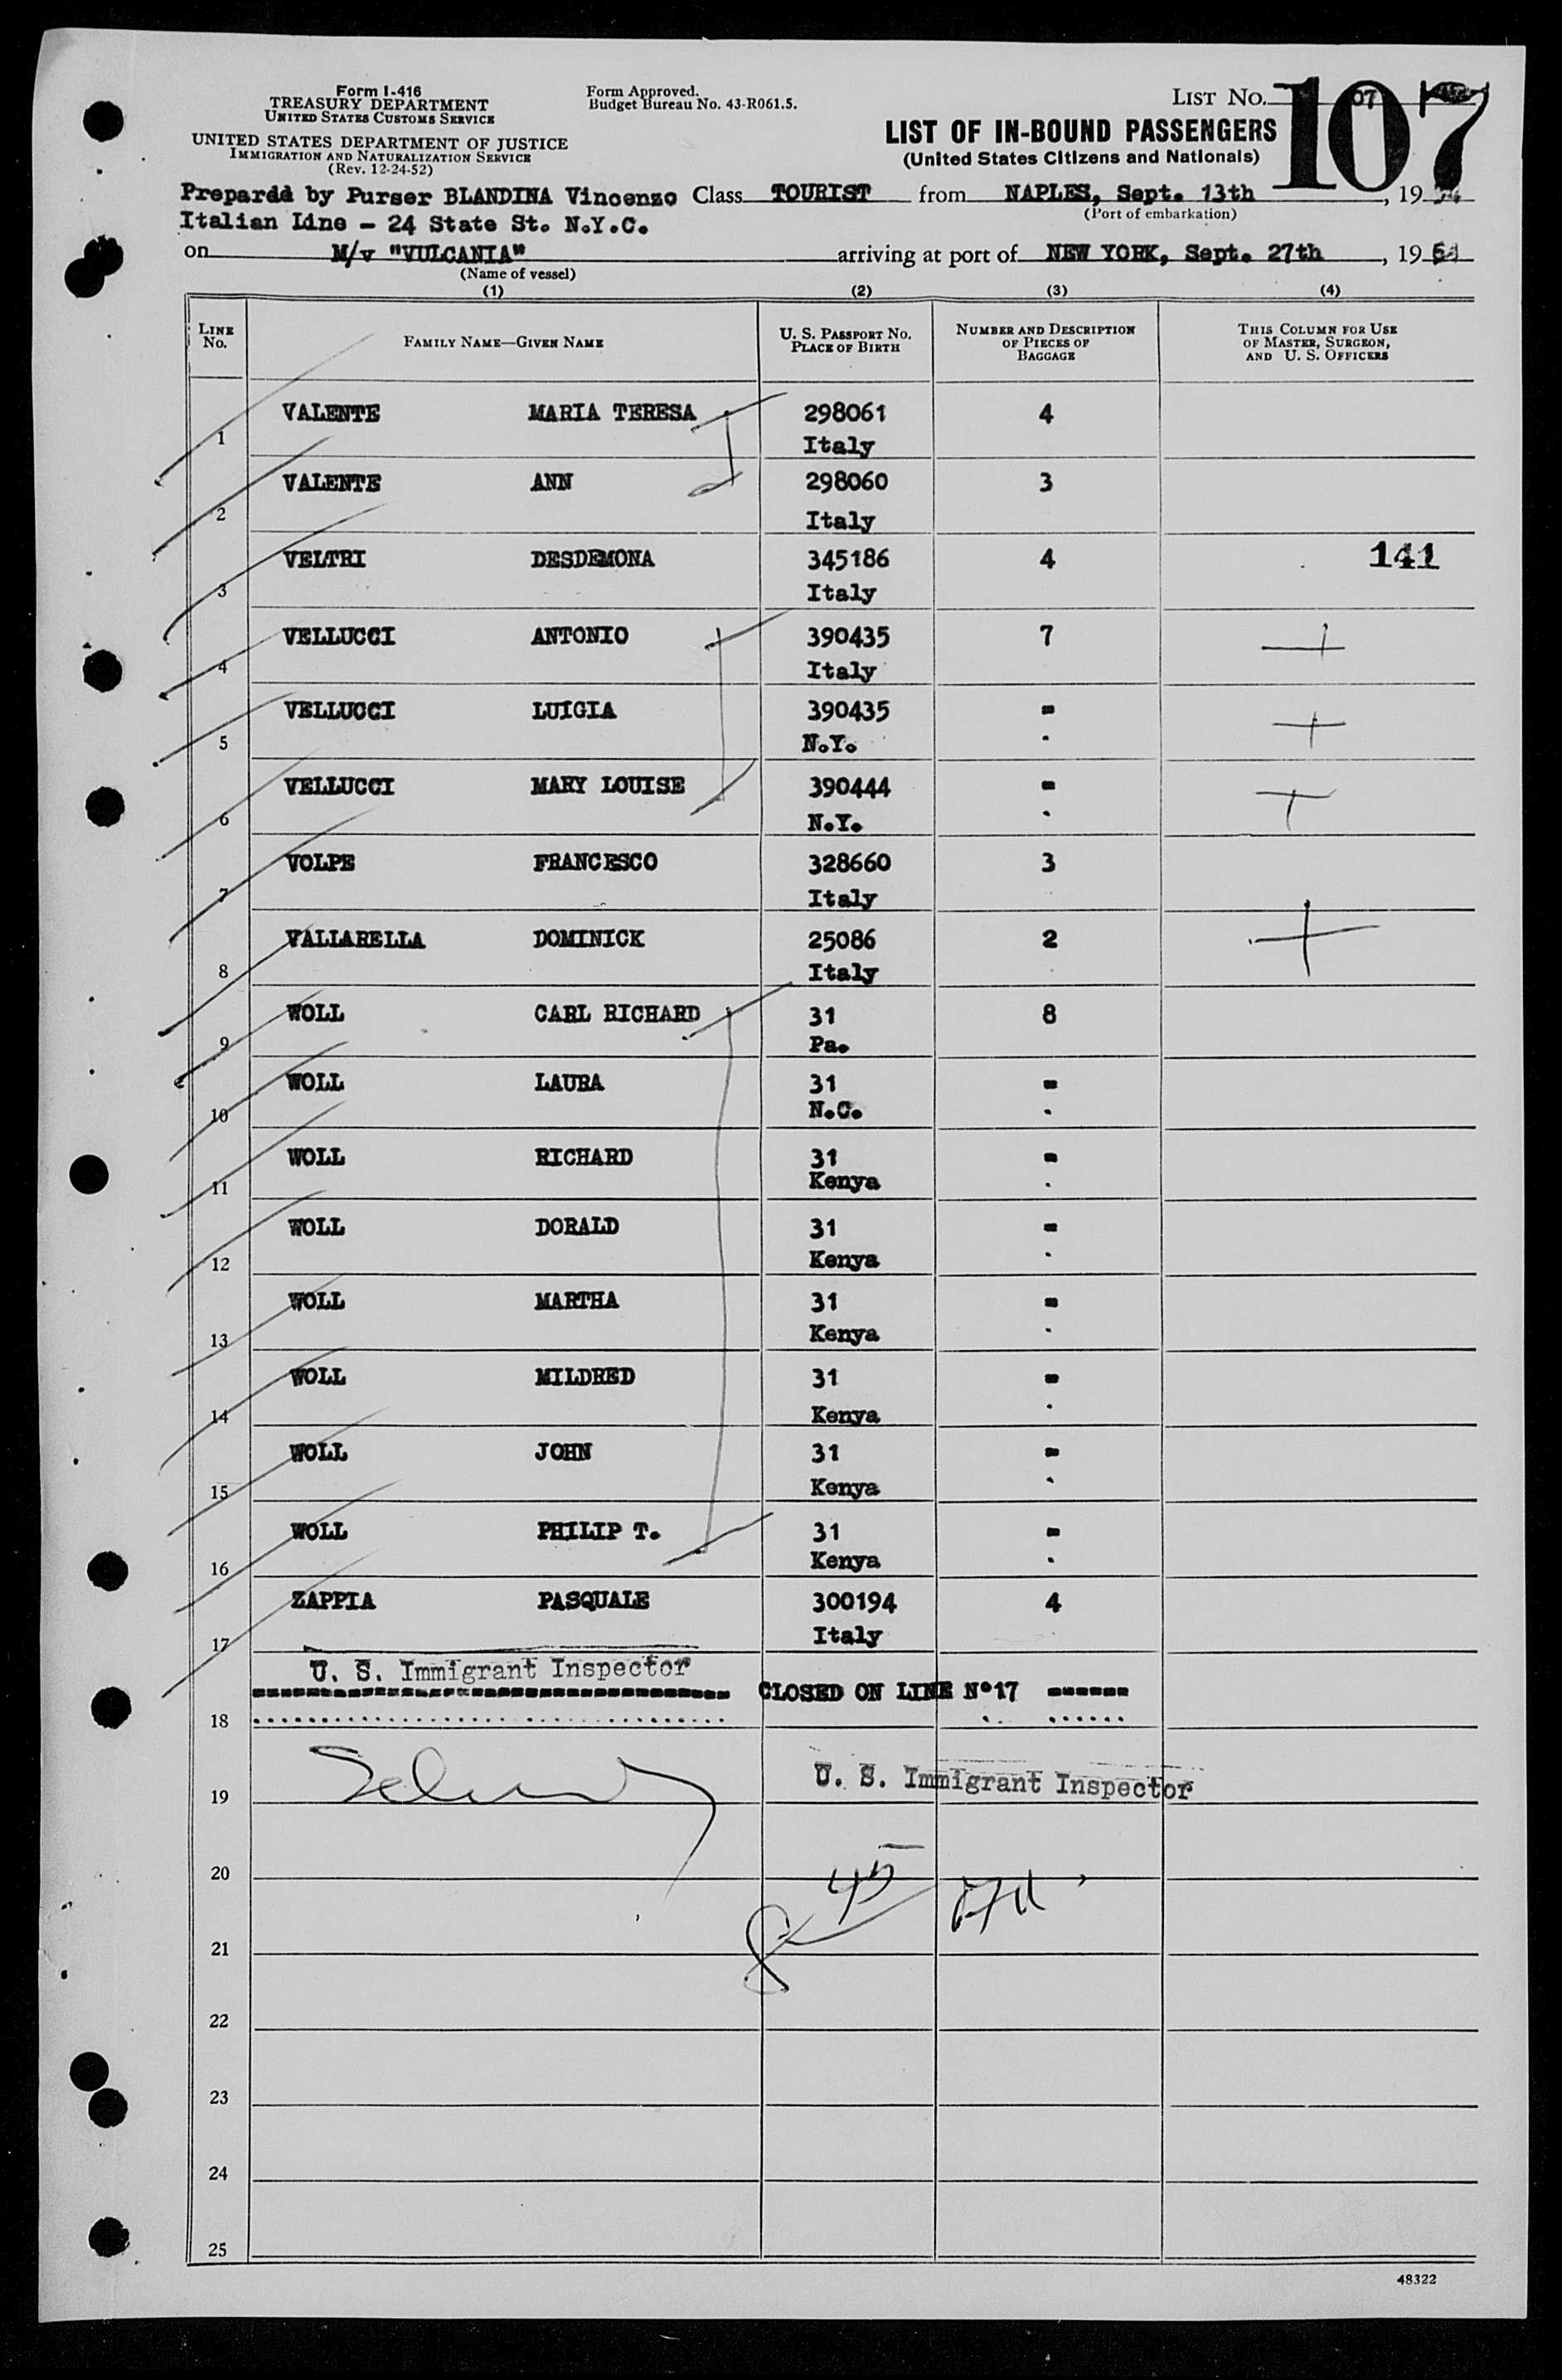 Form I-416
TREASURY DEPARTMENT
UNITED STATES CUSTOMS SERVICE
UNITED STATES DEPARTMENT OF JUSTICE
IMMIGRATION AND NATURALIZATION SERVICE
(Rev. 12-24-52)
Form Approved.
Budget Bureau No. 43-R061.5.
LIST NO. 107
107
LIST OF IN-BOUND PASSENGERS
(United States Citizens and Nationals)
Prepardd by Purser BLANDINA Vincenzo Class TOURIST from NAPLES, Sept. 13th, 19
(Port of embarkation)
Italian Line - 24 State St. N.Y.C.
on M/v "VULCANIA" arriving at port of NEW YORK, Sept. 27th, 19
(Name of vessel)
(1) (2) (3) (4)
LINE NO. FAMILY NAME—GIVEN NAME U. S. PASSPORT NO. PLACE OF BIRTH NUMBER AND DESCRIPTION OF PIECES OF BAGGAGE THIS COLUMN FOR USE OF MASTER, SURGEON, AND U. S. OFFICERS
1 VALENTE MARIA TERESA 298061 4
Italy
2 VALENTE ANN 298060 3
Italy
3 VELTRI DESDEMONA 345186 4 141
Italy
4 VELLUCCI ANTONIO 390435 7
Italy
5 VELLUCCI LUIGIA 390435 -
N.Y.
6 VELLUCCI MARY LOUISE 390444 -
N.Y.
7 VOLPE FRANCESCO 328660 3
Italy
8 VALLARELLA DOMINICK 25086 2
Italy
9 WOLL CARL RICHARD 31 8
Pa.
10 WOLL LAURA 31 -
N.C.
11 WOLL RICHARD 31 -
Kenya
12 WOLL DORALD 31 -
Kenya
13 WOLL MARTHA 31 -
Kenya
14 WOLL MILDRED 31 -
Kenya
15 WOLL JOHN 31 -
Kenya
16 WOLL PHILIP T. 31 -
Kenya
17 ZAPPIA PASQUALE 300194 4
Italy
U. S. Immigrant Inspector
18 CLOSED ON LINE N° 17
19 U. S. Immigrant Inspector
20 45
21
22
23
24
25
48322